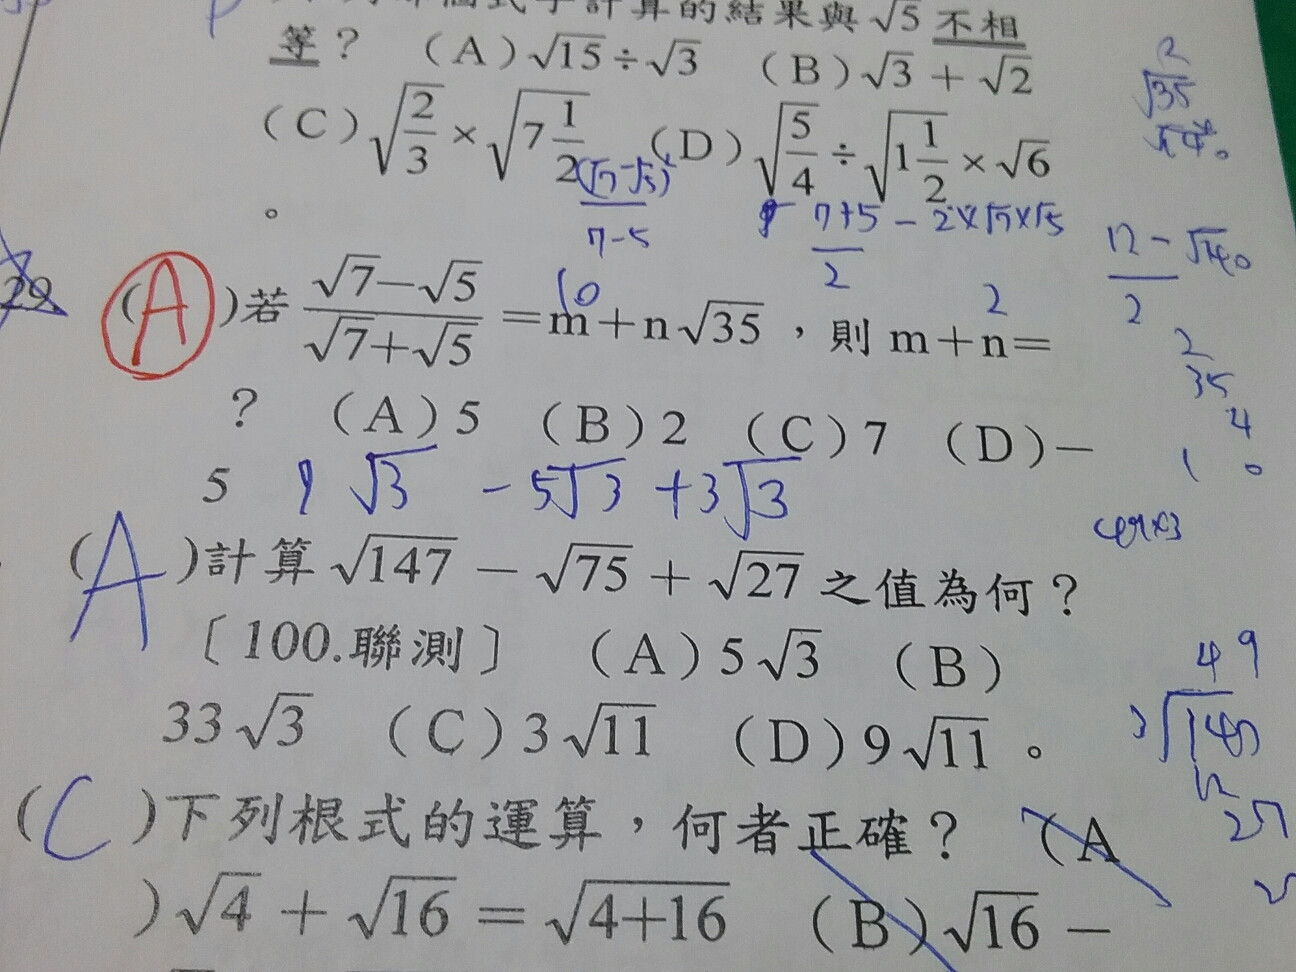 個式子計算的結果與√5 不相
等？ （A）√15÷√3 （B）√3 + √2
（C）√(2/3) × √(7 1/2) （D）√(5/4) ÷ √(1 1/2) × √6
。
(√7-√5)²
7-5
7+5 - 2×√7×√5
2
12 - √140
2
√35
29 (A)若 (√7-√5)/(√7+√5) = m+n√35 ，則 m+n=
？ （A）5 （B）2 （C）7 （D）-
5
√3 - 5√3 + 3√3
(A)計算 √147 - √75 + √27 之值為何？
〔100.聯測〕 （A）5√3 （B）
33√3 （C）3√11 （D）9√11 。
49
27
(C)下列根式的運算，何者正確？ （A
）√4 + √16 = √(4+16) （B）√16 -